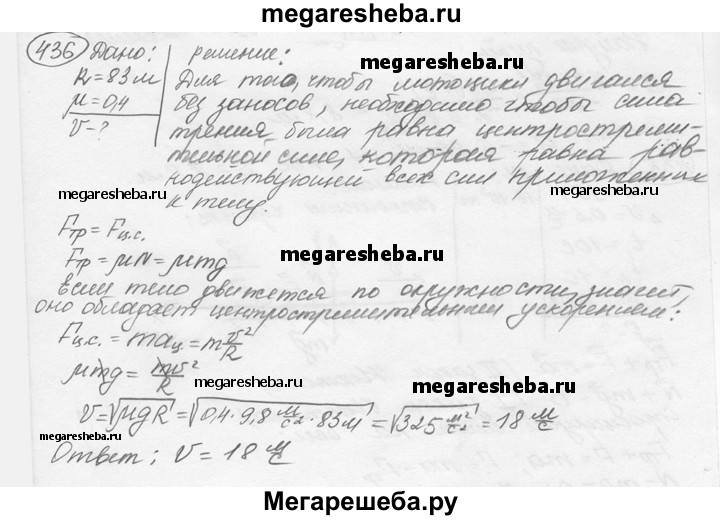 megaresheba.ru
436 Дано: Решение:
megaresheba.ru
R = 83 м Для того, чтобы мотоцикл двигался
μ = 0,4 без заносов, необходимо чтобы сила
V - ? трения была равна центростреми-
тельной силе, которая равна рав-
нодействующей всех сил приложенных
megaresheba.ru megaresheba.ru
к телу.
Fтр = Fц.с.
megaresheba.ru
Fтр = μN = μmg
Если тело движется по окружности, значит
оно обладает центростремительным ускорением:
Fц.с. = maц = m v²/R
μmg = mv²/R
megaresheba.ru
megaresheba.ru
V = √μgR = √0,4 · 9,8 м/с² · 83 м = √325 м²/с² = 18 м/с
megaresheba.ru
Ответ: V = 18 м/с
megaresheba.ru
Мегарешеба.ру